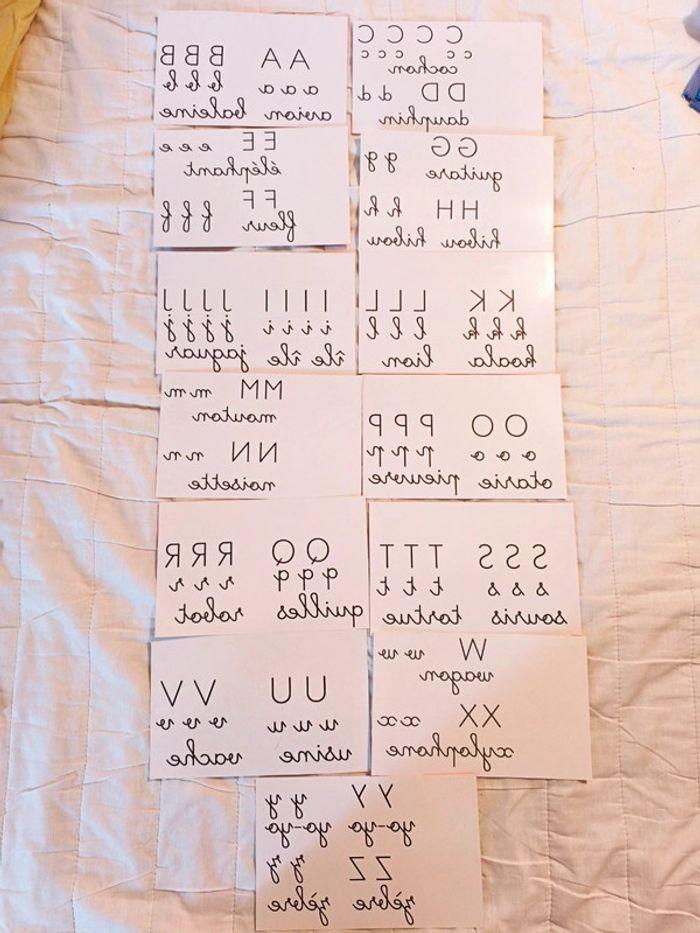 A A B B B
a a a b b b
avion baleine
C C C C C
c c c c c c
cochon
D D d d
dauphin
E E e e e
éléphant
F F f f f
fleur
G G g g
guitare
H H h h
hibou hibou
I I I I J J J J
i i i i j j j j
île île jaguar
K K L L L
k k k l l l
koala lion
M M m m
mouton
N N n n
noisette
O O P P P
o o o p p p
otarie pieuvre
Q Q R R R
q q q r r r
quilles robot
S S S T T T
s s s t t t
souris tortue
U U V V
u u u v v v
usine vache
W w w
wagon
X X x x
xylophone
Y Y y y
yo-yo yo-yo
Z Z z z
zèbre zèbre